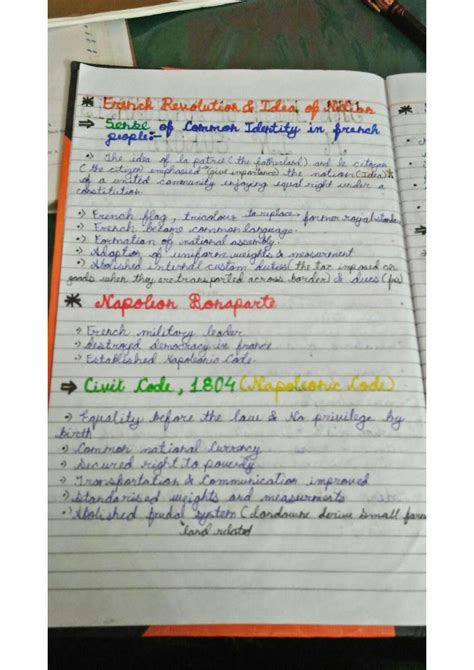 * French Revolution & Idea of Nation
⇒ Sense of Common Identity in french
people:-
·) The idea of la patrie (the fatherland) and le citizen
(the citizen) emphasised (give importance) the notion (Idea)
of a united community enjoying equal right under a
constitution.
·) French flag, tricolour to replace former royal
·) French became common language.
·) Formation of national assembly.
·) Adaption of uniform weights & measurment
·) Abolished internal custom duties (the tax imposed on
goods when they are transported across border) & dues
* Napoleon Bonaparte
·) French military leader
·) Destroyed democracy in france
·) Established Napoleonic Code.
⇒ Civil Code, 1804 (Napoleonic Code)
·) Equality before the law & No privilege by
birth
·) Common national Currency
·) Secured right to
·) Transportation & Communication improved
·) Standarised weights and measurments
·) Abolished feudal system ( small
land related